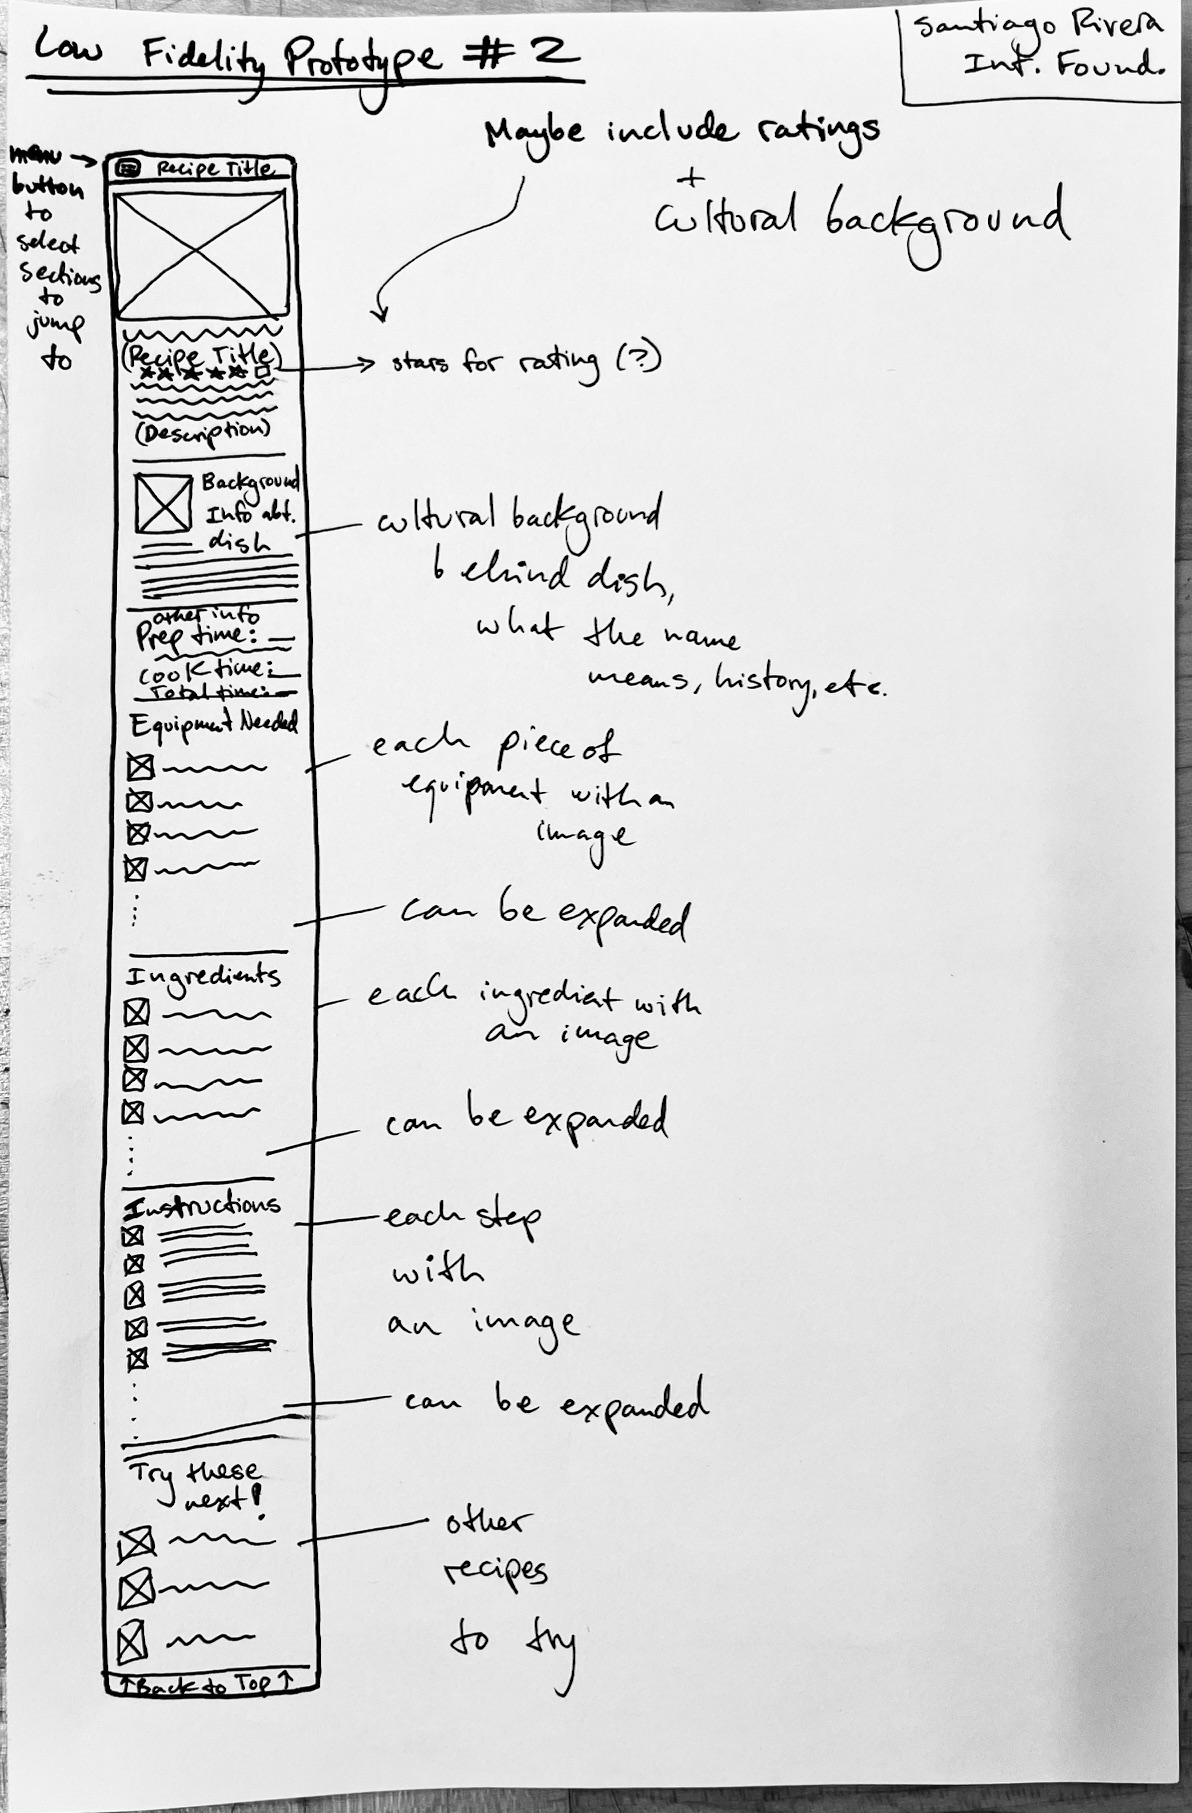 Low Fidelity Prototype #2
Santiago Rivera
Int. Found.
Maybe include ratings
+
cultural background
menu →
button
to
select
sections
to
jump
to
Recipe Title
(Recipe Title)
→ stars for rating (?)
(Description)
Background
Info abt.
dish
cultural background
behind dish,
what the name
means, history, etc.
other info
Prep time:
Cook time:
Total time:
Equipment Needed
each piece of
equipment with an
image
can be expanded
Ingredients
each ingredient with
an image
can be expanded
Instructions
each step
with
an image
can be expanded
Try these
next!
other
recipes
to try
↑Back to Top↑